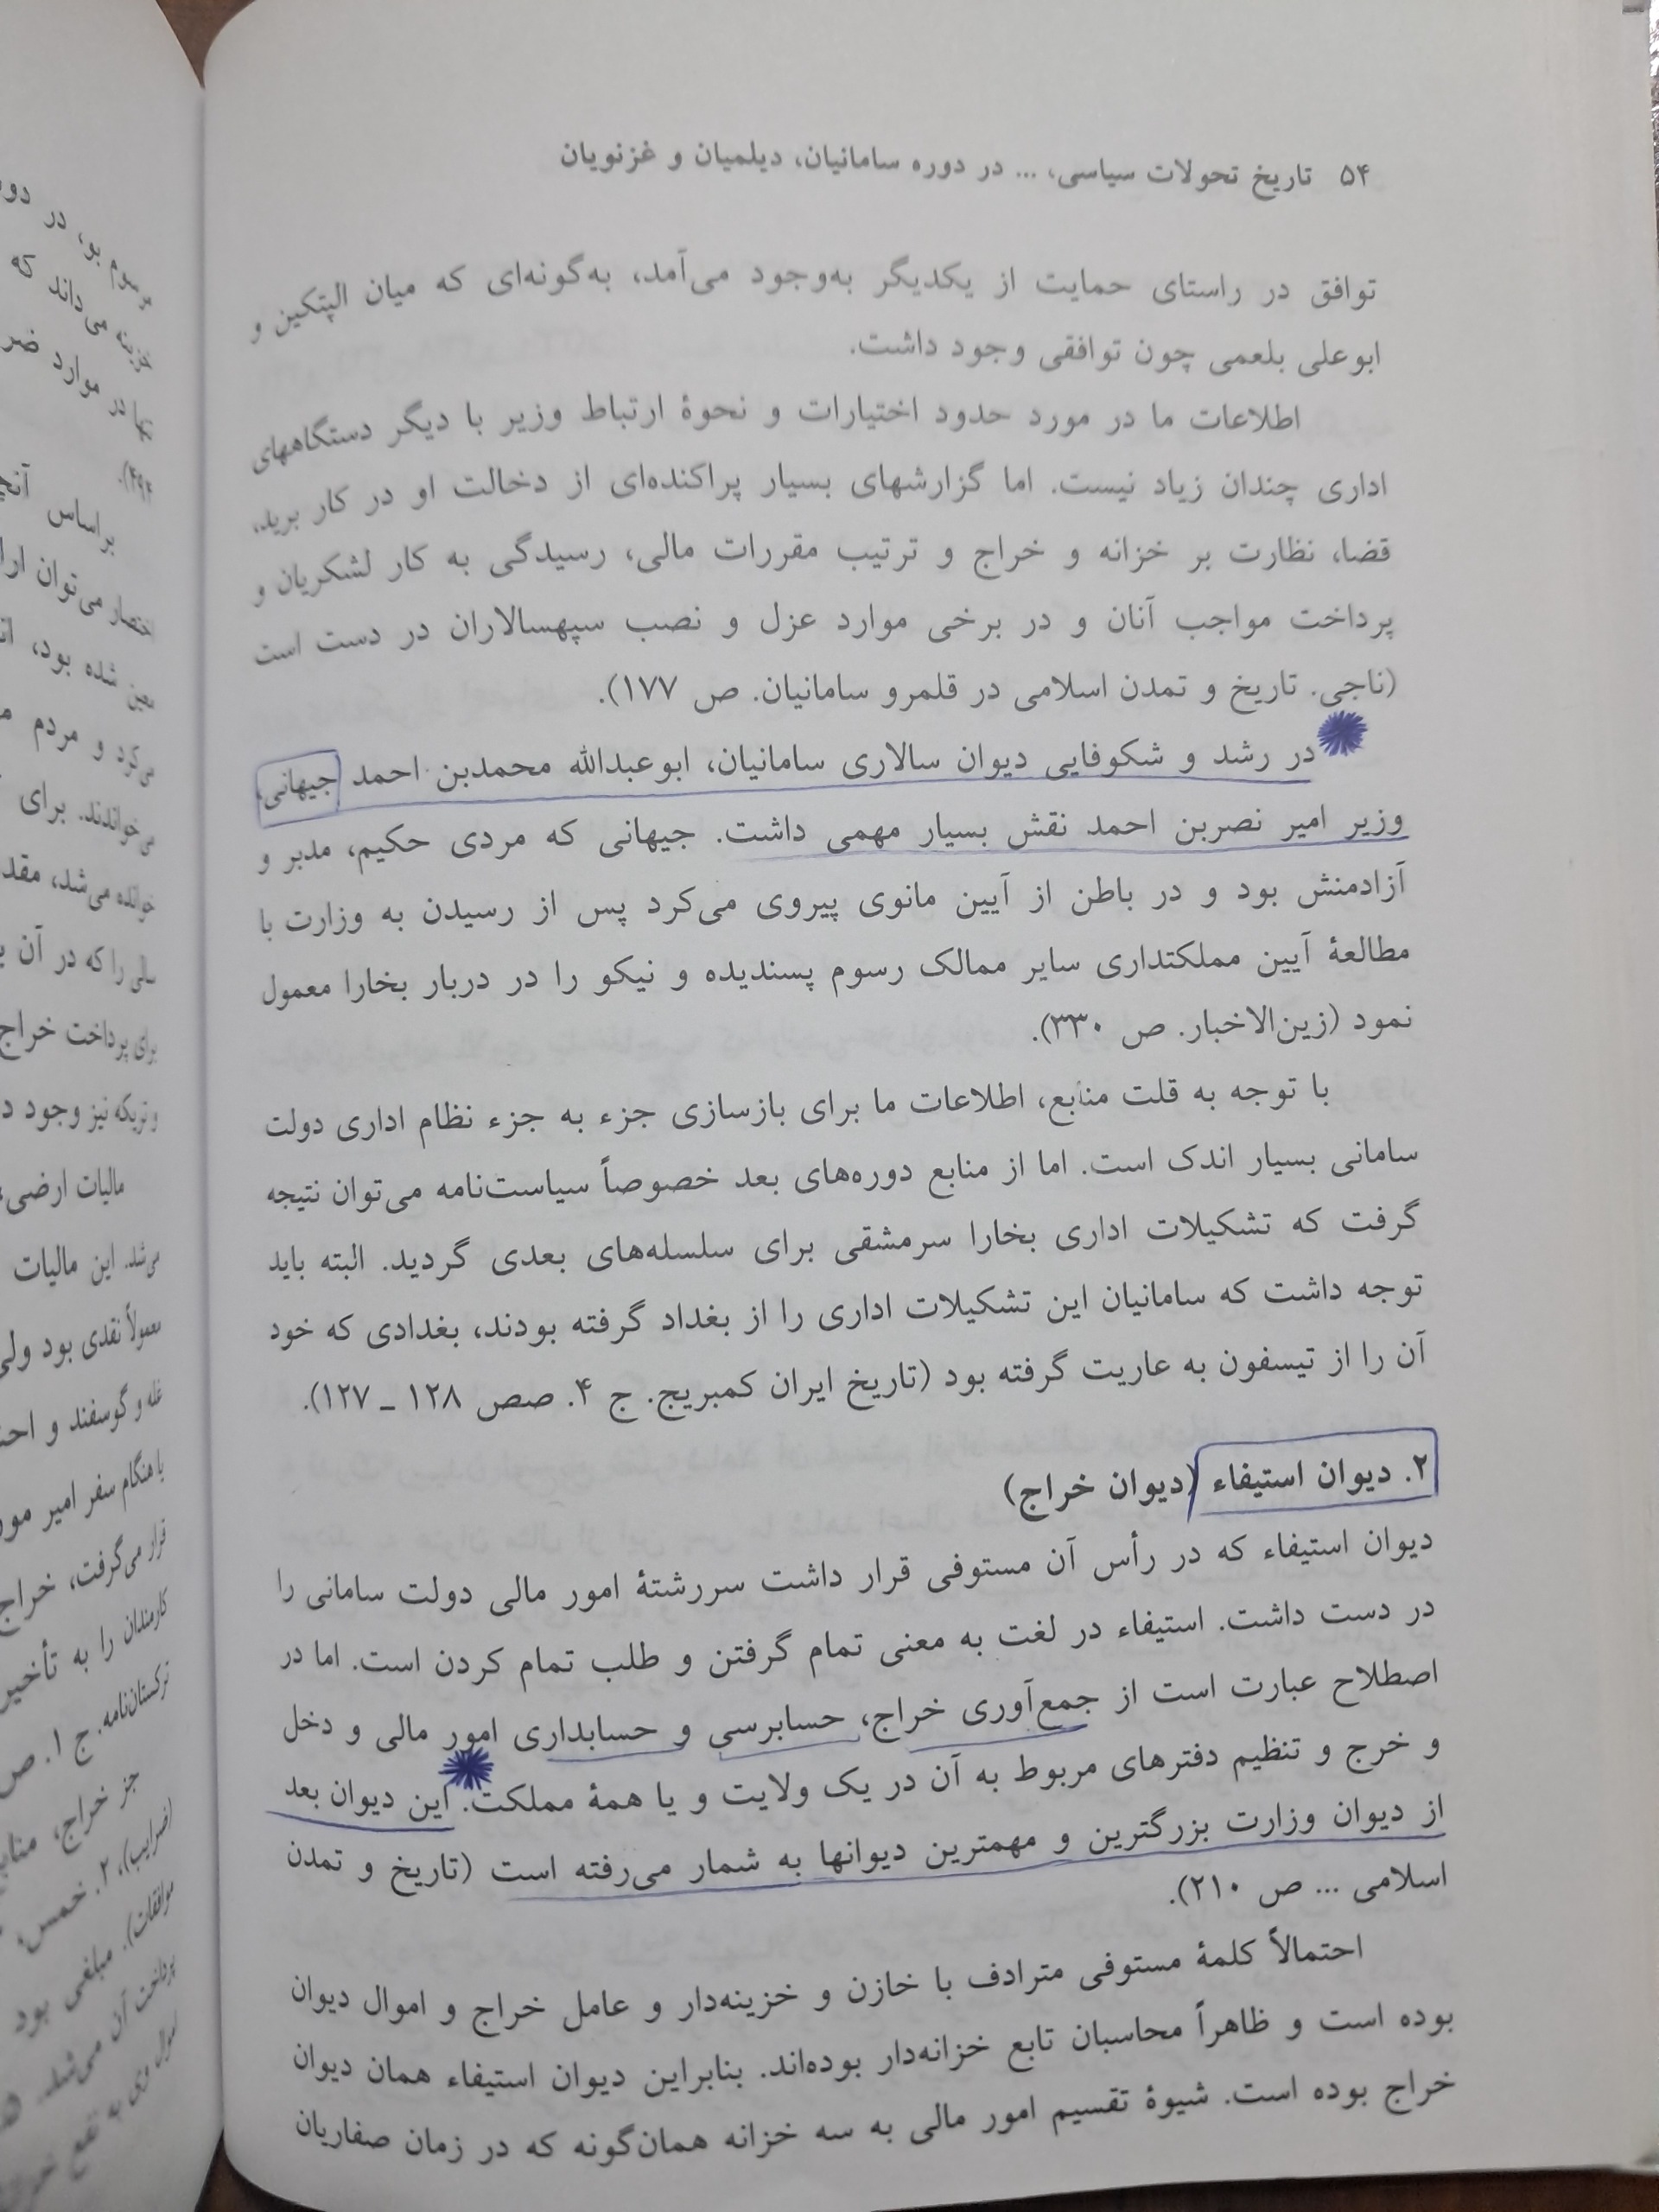 ۵۴ تاریخ تحولات سیاسی، ... در دوره سامانیان، دیلمیان و غزنویان
توافق در راستای حمایت از یکدیگر به‌وجود می‌آمد، به‌گونه‌ای که میان الپتکین و
ابوعلی بلعمی چون توافقی وجود داشت.
اطلاعات ما در مورد حدود اختیارات و نحوهٔ ارتباط وزیر با دیگر دستگاههای
اداری چندان زیاد نیست. اما گزارشهای بسیار پراکنده‌ای از دخالت او در کار برید،
قضا، نظارت بر خزانه و خراج و ترتیب مقررات مالی، رسیدگی به کار لشکریان و
پرداخت مواجب آنان و در برخی موارد عزل و نصب سپهسالاران در دست است
(ناجی. تاریخ و تمدن اسلامی در قلمرو سامانیان. ص ۱۷۷).
در رشد و شکوفایی دیوان سالاری سامانیان، ابوعبدالله محمدبن احمد جیهانی،
وزیر امیر نصربن احمد نقش بسیار مهمی داشت. جیهانی که مردی حکیم، مدبر و
آزادمنش بود و در باطن از آیین مانوی پیروی می‌کرد پس از رسیدن به وزارت با
مطالعهٔ آیین مملکتداری سایر ممالک رسوم پسندیده و نیکو را در دربار بخارا معمول
نمود (زین‌الاخبار. ص ۳۳۰).
با توجه به قلت منابع، اطلاعات ما برای بازسازی جزء به جزء نظام اداری دولت
سامانی بسیار اندک است. اما از منابع دوره‌های بعد خصوصاً سیاست‌نامه می‌توان نتیجه
گرفت که تشکیلات اداری بخارا سرمشقی برای سلسله‌های بعدی گردید. البته باید
توجه داشت که سامانیان این تشکیلات اداری را از بغداد گرفته بودند، بغدادی که خود
آن را از تیسفون به عاریت گرفته بود (تاریخ ایران کمبریج. ج ۴. صص ۱۲۸ ـ ۱۲۷).
۲. دیوان استیفاء (دیوان خراج)
دیوان استیفاء که در رأس آن مستوفی قرار داشت سررشتهٔ امور مالی دولت سامانی را
در دست داشت. استیفاء در لغت به معنی تمام گرفتن و طلب تمام کردن است. اما در
اصطلاح عبارت است از جمع‌آوری خراج، حسابرسی و حسابداری امور مالی و دخل
و خرج و تنظیم دفترهای مربوط به آن در یک ولایت و یا همهٔ مملکت. این دیوان بعد
از دیوان وزارت بزرگترین و مهمترین دیوانها به شمار می‌رفته است (تاریخ و تمدن
اسلامی ... ص ۲۱۰).
احتمالاً کلمهٔ مستوفی مترادف با خازن و خزینه‌دار و عامل خراج و اموال دیوان
بوده است و ظاهراً محاسبان تابع خزانه‌دار بوده‌اند. بنابراین دیوان استیفاء همان دیوان
خراج بوده است. شیوهٔ تقسیم امور مالی به سه خزانه همان‌گونه که در زمان صفاریان
بو، در
می‌داند که
در موارد
۴۹۴).
براساس
می‌توان
شده بود،
می‌کرد و مردم
می‌خواندند. برای
خوانده می‌شد،
را که در آن
برای پرداخت خراج
نیز وجود
مالیات ارضی،
می‌شد. این مالیات
معمولاً نقدی بود
غله و گوسفند و
هنگام سفر امیر
قرار می‌گرفت، خراج
کارمندان را به
ترکستان‌نامه. ج ۱. ص
جز خراج،
۲. خمس،
مبلغی بود
پرداخت آن می‌شد.